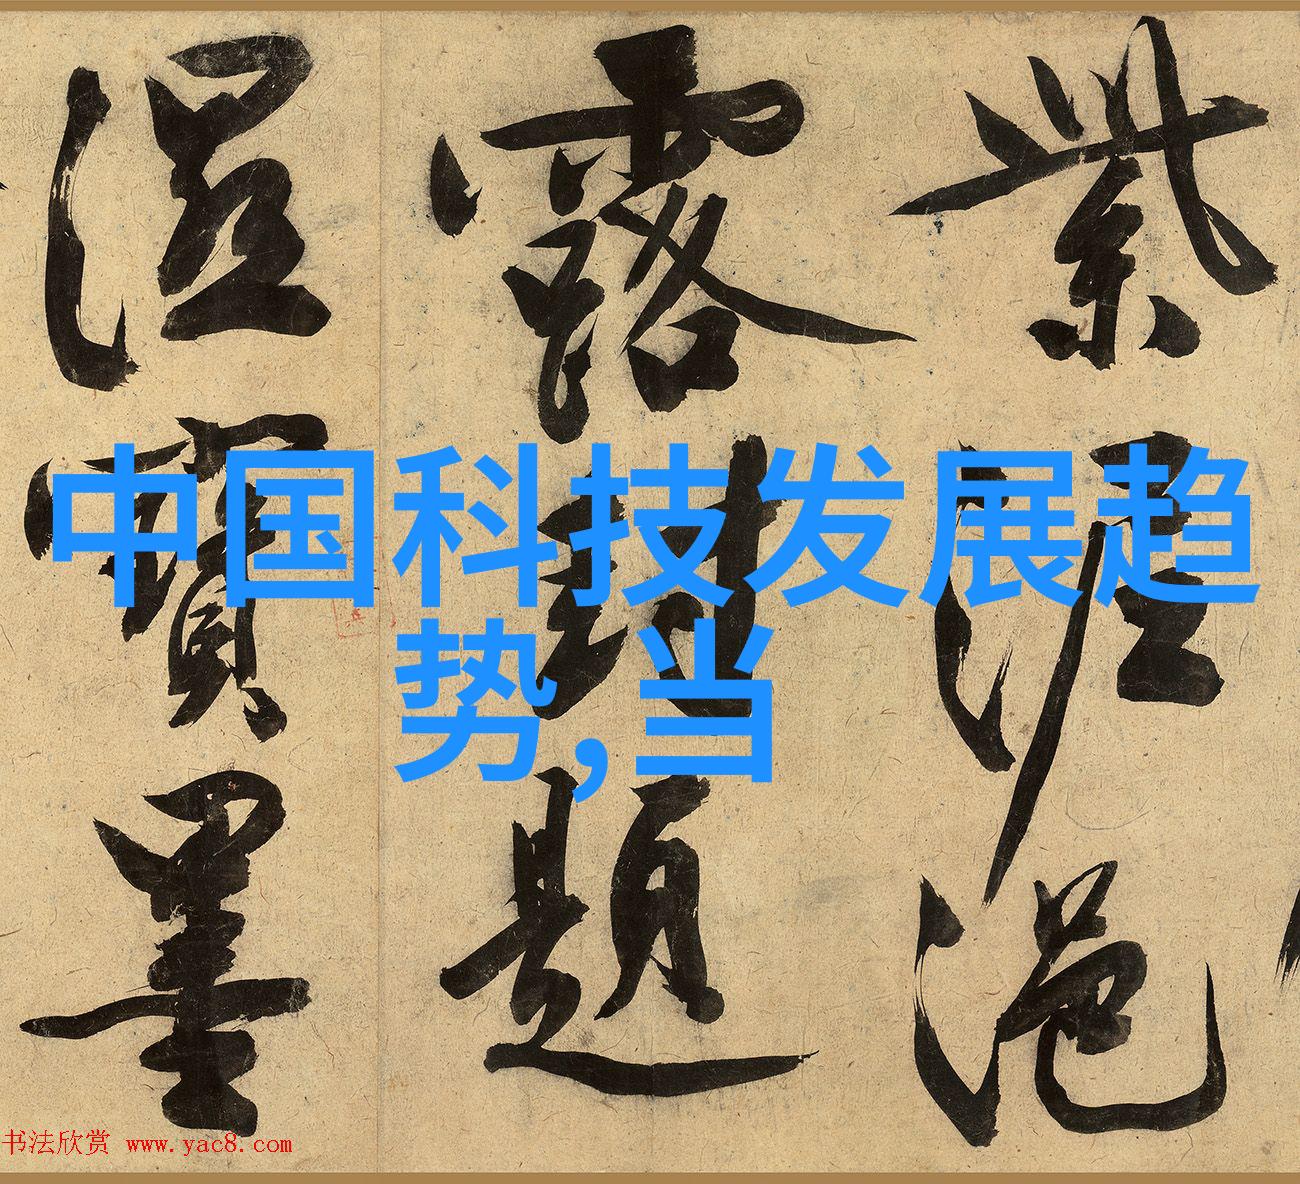 紫泥浥
露封題
溼寶墨
中国科技发展趋
势,当
书法欣赏 www.yac8.com